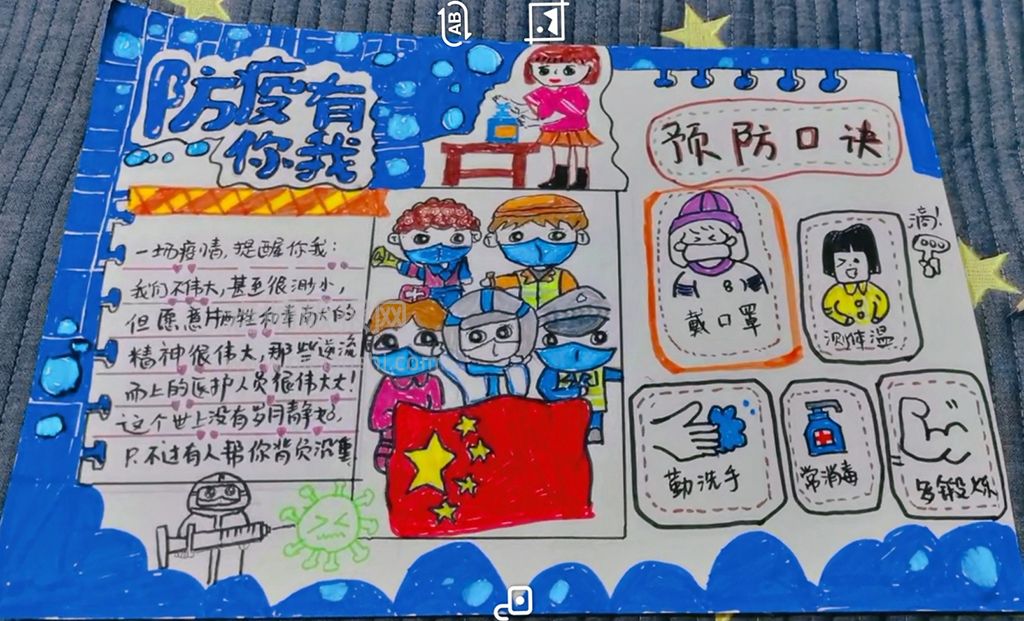 防疫有
你我
一场疫情,提醒你我:
我们不伟大,甚至很渺小,
但愿意牺牲和奉献的
精神很伟大,那些逆流
而上的医护人员很伟大!
这个世上没有岁月静好,
只不过有人帮你背负沉重
预防口诀
戴口罩
滴!
测体温
勤洗手
常消毒
多锻炼